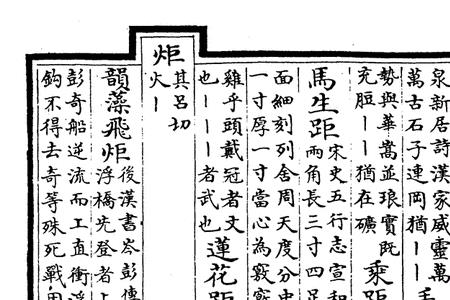 泉新居詩漢家威靈萬
萬古石子連岡猶丨丨
勢與華嵩並琅實既
充丨丨猶在礦
乘距
馬生距
宋史五行志宣和
兩角長三寸四足
面細刻列舍周天度分中
一寸厚一寸當心為竅竅
雞乎頭戴冠者文
也丨丨丨者武也
蓮花距
炬
其呂切
火丨
韻藻飛炬
後漢書岑彭傳
浮橋先登者上
彭奇船逆流而工直衝浮
鈎不得去奇等殊死戰因